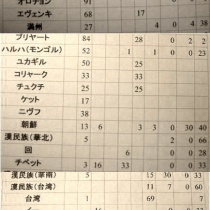 オロチョン 91
エヴェンキ 68 17
満州 27 4 0 4 38
ブリヤート 84 28
ハルハ(モンゴル) 52 1 1 0 0 23
ユカギル 50 25
コリャーク 33 33
チュクチ 25 25
ケット 17
ニヴフ 38
朝鮮 13 6 3 3 0 30 40
漢民族(華北) 5 2 0 66
回 6 2 0 28
チベット 3 16 33 0 33
漢民族(華南) 5 15 30 0 33
漢民族(台湾) 11 7 0 60
台湾 1 69 7